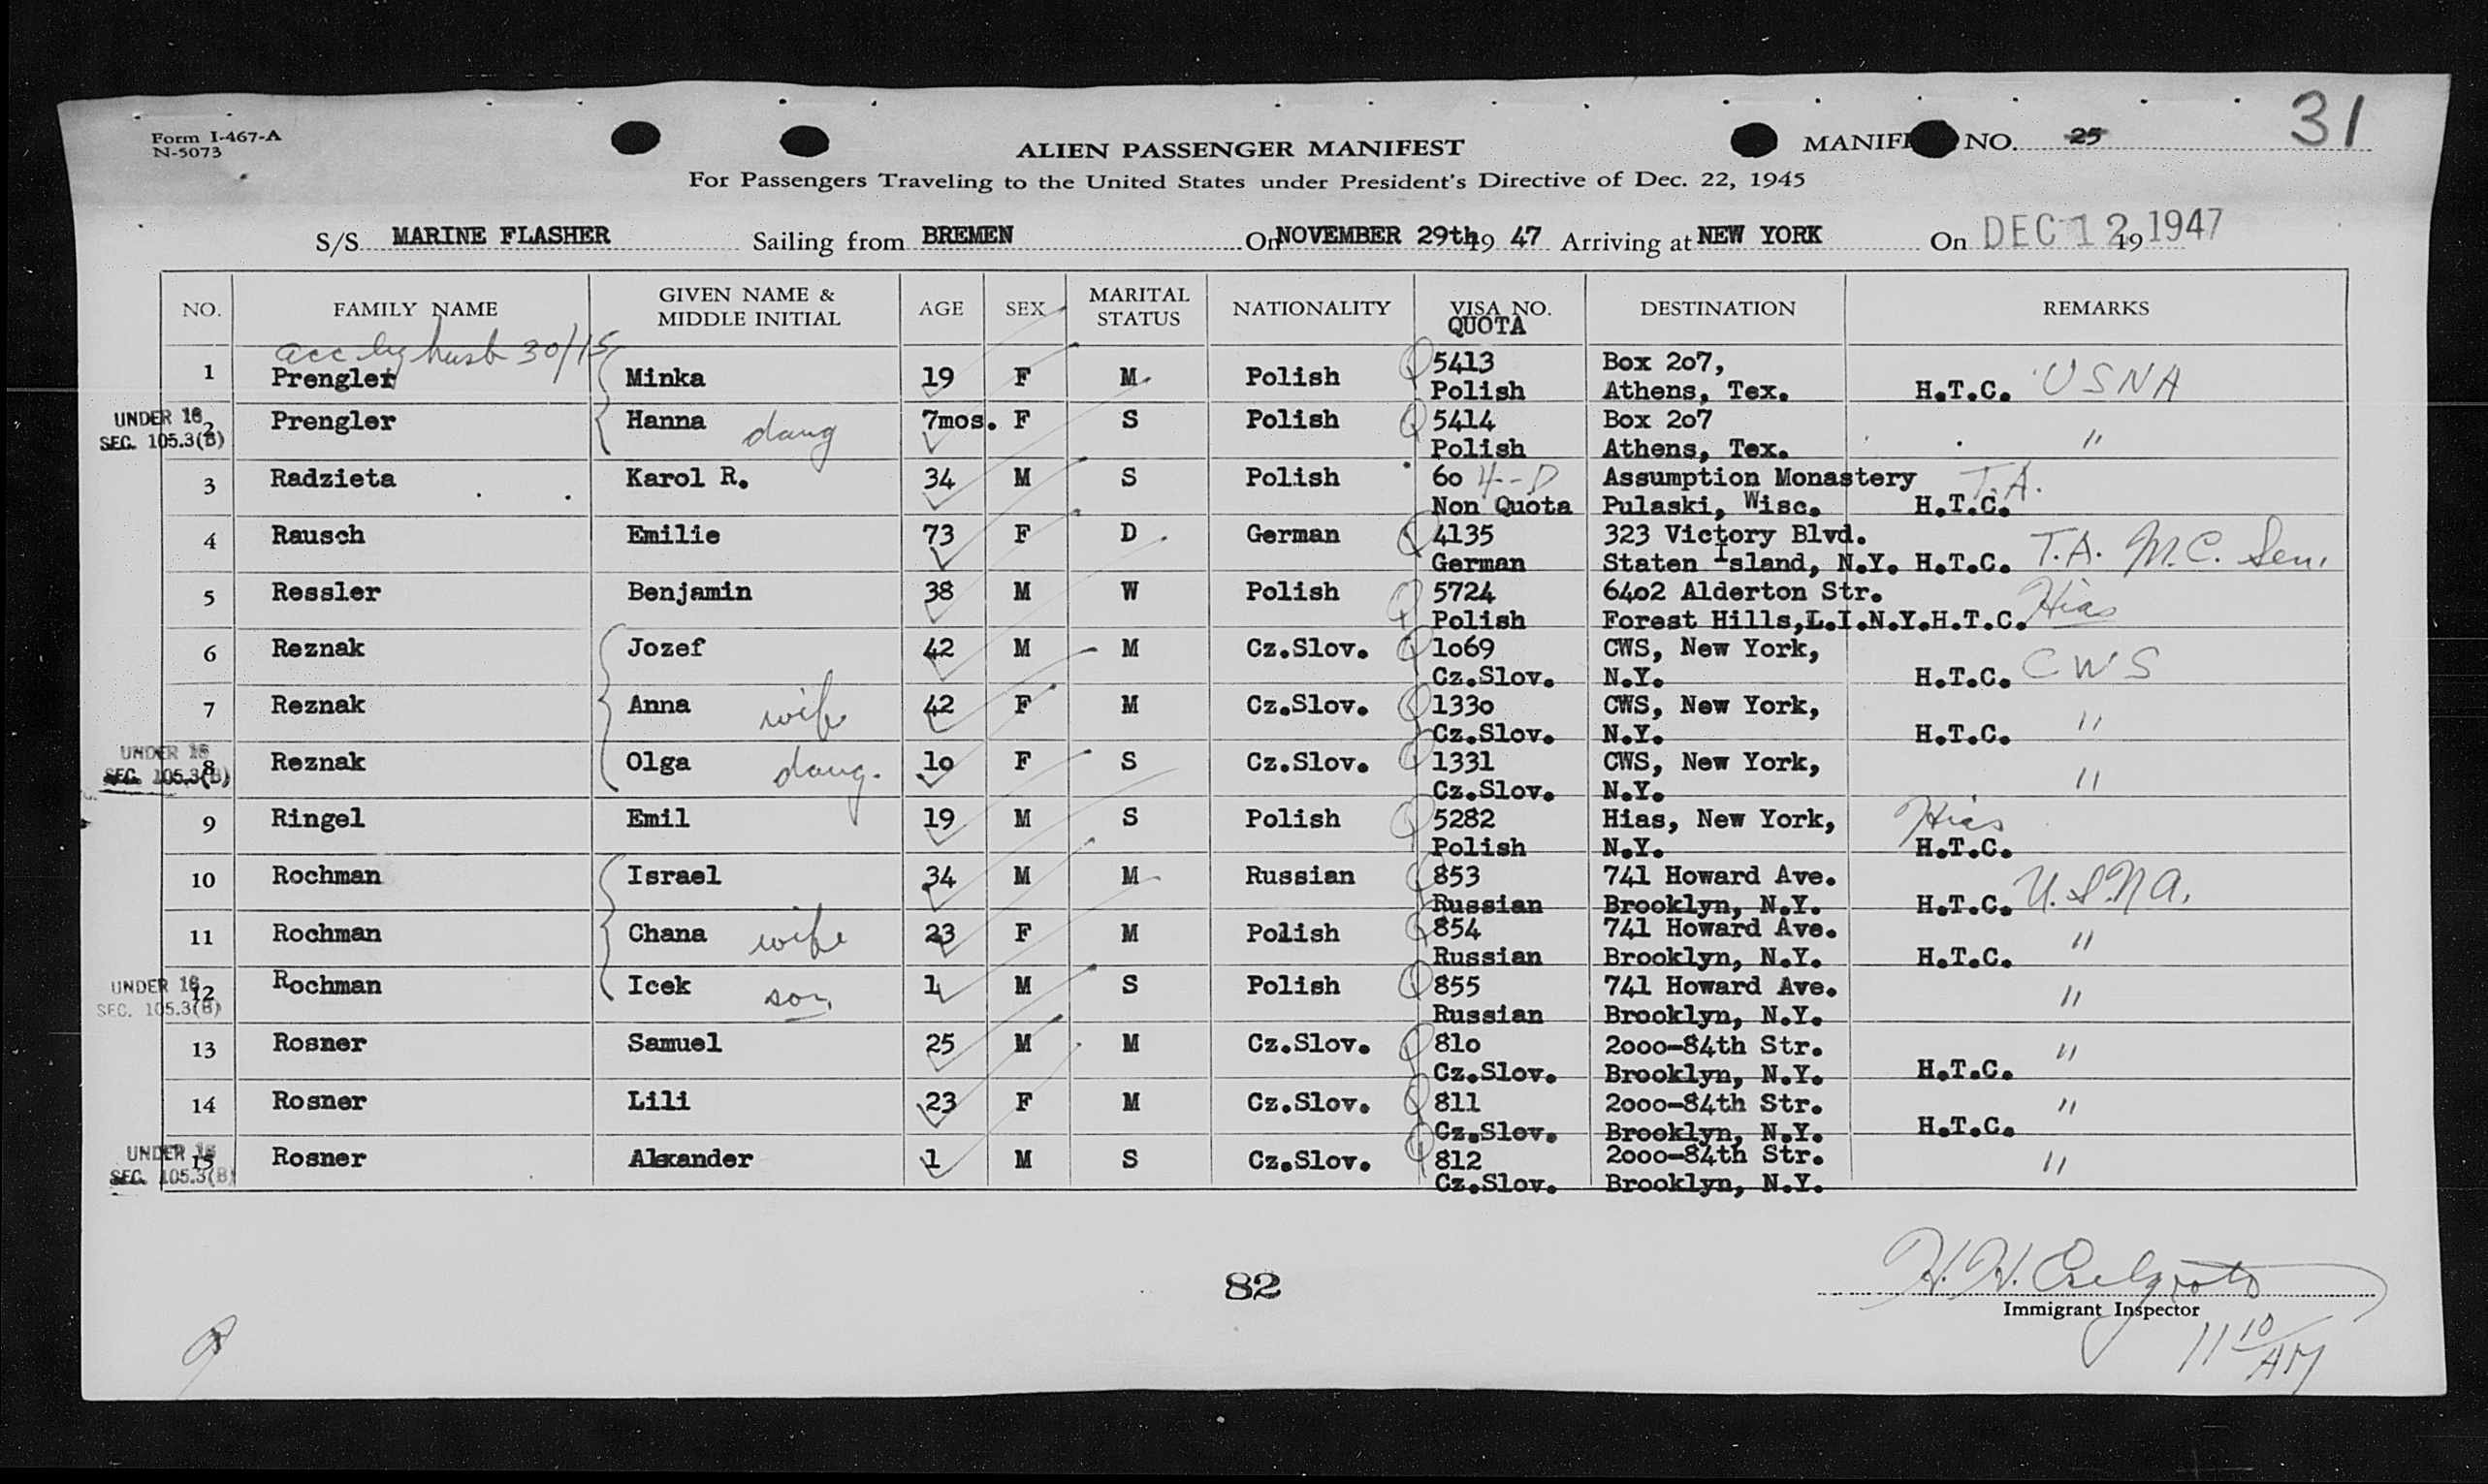 Form I-467-A
N-5073
31
ALIEN PASSENGER MANIFEST
MANIF NO. 25
For Passengers Traveling to the United States under President's Directive of Dec. 22, 1945
S/S MARINE FLASHER Sailing from BREMEN On NOVEMBER 29th 19 47 Arriving at NEW YORK On DEC 12 19 1947
NO. FAMILY NAME GIVEN NAME & MIDDLE INITIAL AGE SEX MARITAL STATUS NATIONALITY VISA NO. QUOTA DESTINATION REMARKS
acc by husb 30/15
1 Prengler Minka 19 F M Polish 5413 Box 2o7,
Polish Athens, Tex. H.T.C. USNA
UNDER 16
SEC. 105.3(B)
2 Prengler Hanna daug 7mos. F S Polish 5414 Box 2o7 "
Polish Athens, Tex.
3 Radzieta Karol R. 34 M S Polish 6o 4-D Assumption Monastery T.A.
Non Quota Pulaski, Wisc. H.T.C.
4 Rausch Emilie 73 F D German 4135 323 Victory Blvd.
German Staten Island, N.Y. H.T.C. T.A. M.C. Sem.
5 Ressler Benjamin 38 M W Polish 5724 64o2 Alderton Str.
Polish Forest Hills,L.I.N.Y.H.T.C. Hias
6 Reznak Jozef 42 M M Cz.Slov. 1o69 CWS, New York,
Cz.Slov. N.Y. H.T.C. CWS
7 Reznak Anna wife 42 F M Cz.Slov. 133o CWS, New York,
Cz.Slov. N.Y. H.T.C. "
UNDER 16
SEC. 105.3(B)
8 Reznak Olga daug. 1o F S Cz.Slov. 1331 CWS, New York,
Cz.Slov. N.Y. "
9 Ringel Emil 19 M S Polish 5282 Hias, New York, Hias
Polish N.Y. H.T.C.
10 Rochman Israel 34 M M Russian 853 741 Howard Ave.
Russian Brooklyn, N.Y. H.T.C. U.S.N.A.
11 Rochman Chana wife 23 F M Polish 854 741 Howard Ave. "
Russian Brooklyn, N.Y. H.T.C.
UNDER 16
SEC. 105.3(B)
12 Rochman Icek son 1 M S Polish 855 741 Howard Ave. "
Russian Brooklyn, N.Y.
13 Rosner Samuel 25 M M Cz.Slov. 81o 2ooo-84th Str. "
Cz.Slov. Brooklyn, N.Y. H.T.C.
14 Rosner Lili 23 F M Cz.Slov. 811 2ooo-84th Str. "
Cz.Slov. Brooklyn, N.Y. H.T.C.
UNDER 16
SEC. 105.3(B)
15 Rosner Alexander 1 M S Cz.Slov. 812 2ooo-84th Str. "
Cz.Slov. Brooklyn, N.Y.
82
H. H.
Immigrant Inspector
11 10 AM